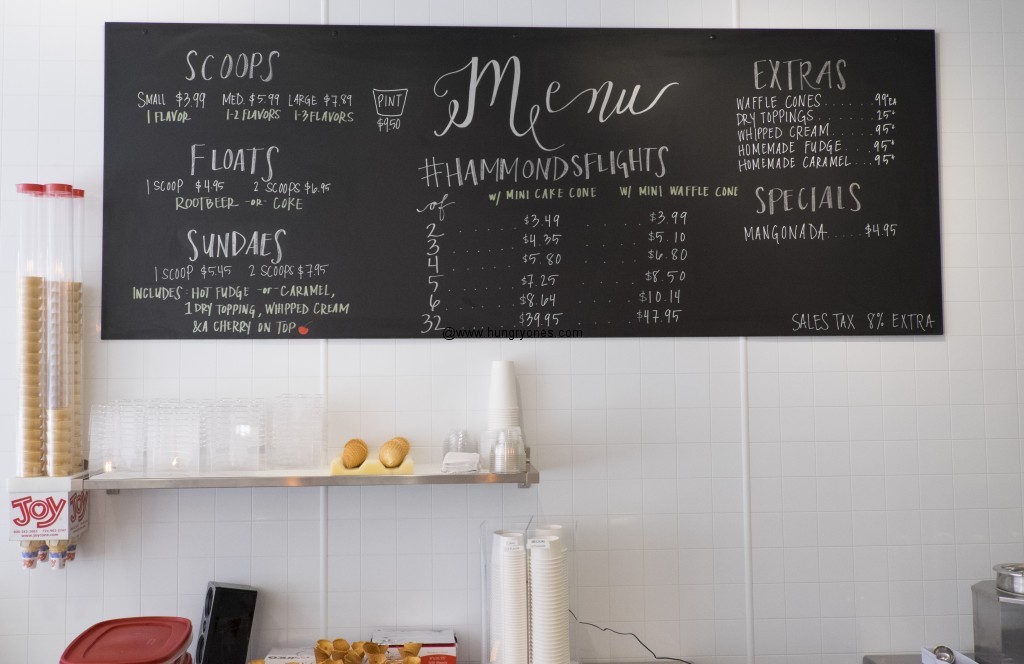 SCOOPS
SMALL $3.99 MED. $5.99 LARGE $7.89
1 FLAVOR 1-2 FLAVORS 1-3 FLAVORS
PINT
$9.50
FLOATS
1 SCOOP $4.95 2 SCOOPS $6.95
ROOTBEER -OR- COKE
SUNDAES
1 SCOOP $5.45 2 SCOOPS $7.95
INCLUDES: HOT FUDGE -or- CARAMEL,
1 DRY TOPPING, WHIPPED CREAM
& A CHERRY ON TOP
Menu
#HAMMONDSFLIGHTS
of W/ MINI CAKE CONE W/ MINI WAFFLE CONE
2 $3.49 $3.99
3 $4.35 $5.10
4 $5.80 $6.80
5 $7.25 $8.50
6 $8.64 $10.14
32 $39.95 $47.95
EXTRAS
WAFFLE CONES......99¢EA
DRY TOPPINGS......25¢
WHIPPED CREAM.....95¢
HOMEMADE FUDGE....95¢
HOMEMADE CARAMEL...95¢
SPECIALS
MANGONADA......$4.95
SALES TAX 8% EXTRA
©www.hungryones.com
JOY
www.joycone.com